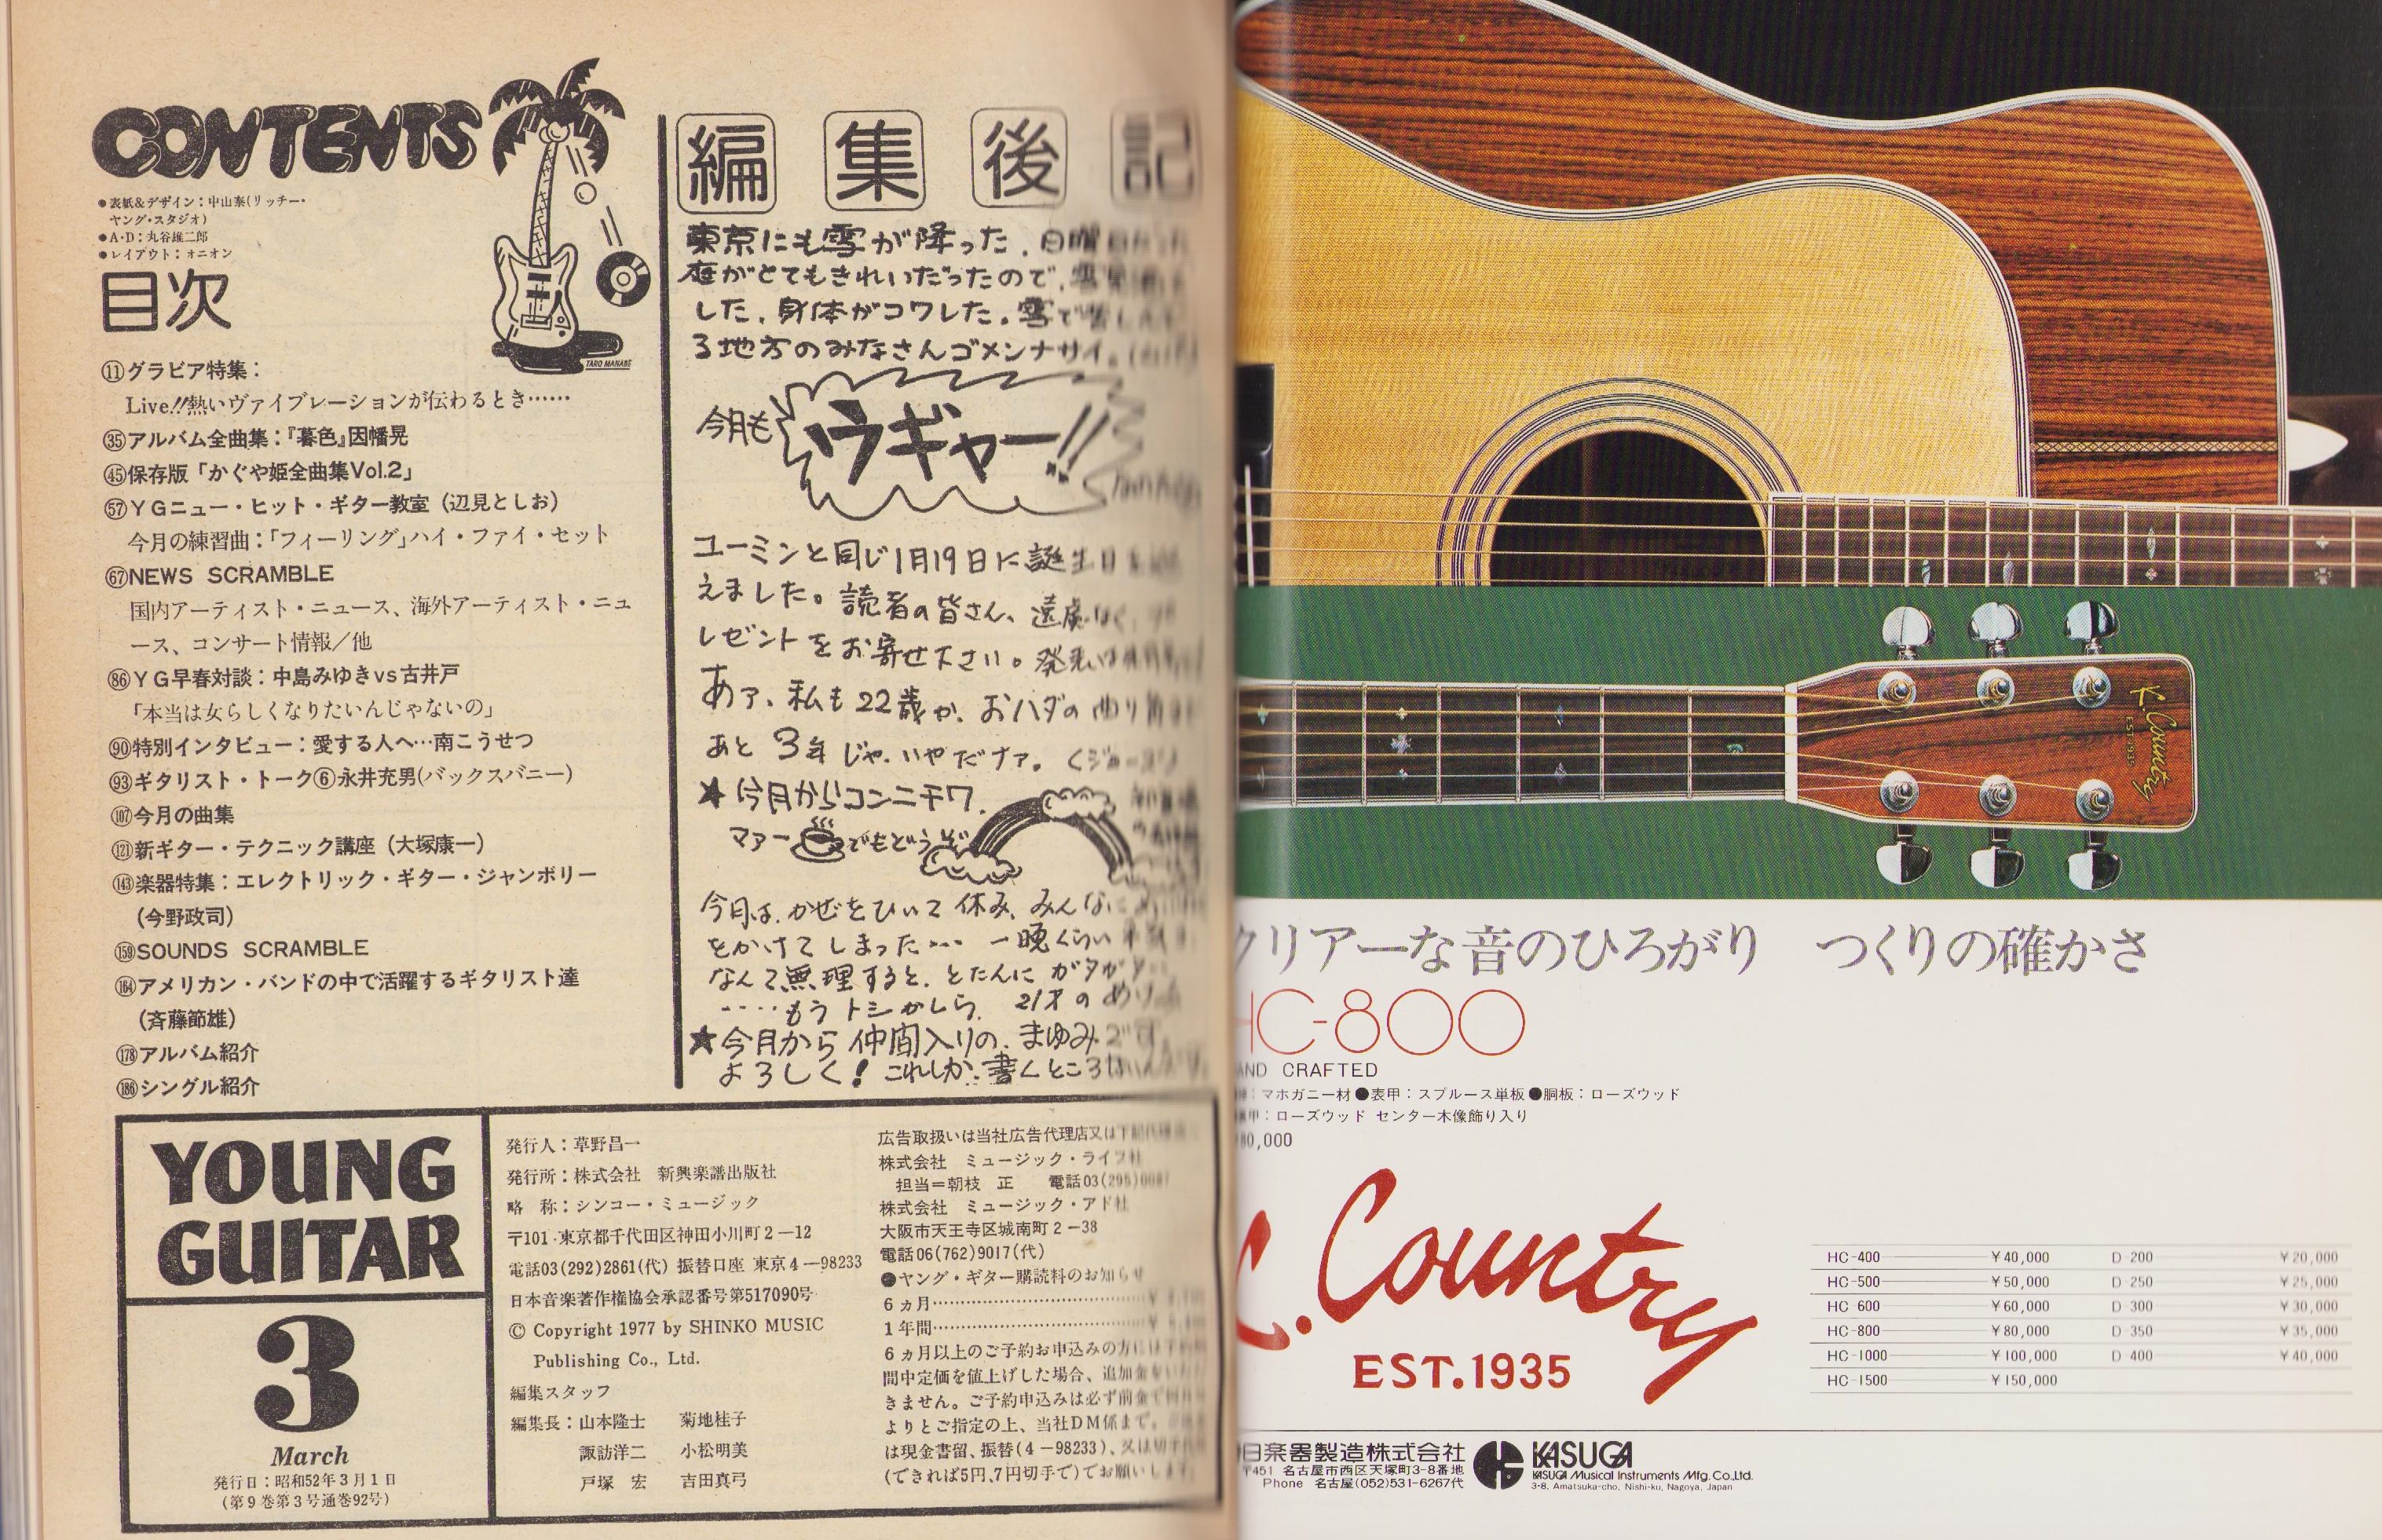 CONTENTS
●表紙&デザイン：中山泰(リッチー・
ヤング・スタジオ)
●A・D：丸谷雄二郎
●レイアウト：オニオン
目次
TARO MANABE
⑪グラビア特集：
Live!!熱いヴァイブレーションが伝わるとき……
㉟アルバム全曲集：『暮色』因幡晃
㊺保存版「かぐや姫全曲集Vol.2」
57YGニュー・ヒット・ギター教室（辺見としお）
今月の練習曲：「フィーリング」ハイ・ファイ・セット
67NEWS SCRAMBLE
国内アーティスト・ニュース、海外アーティスト・ニュ
ース、コンサート情報／他
86YG早春対談：中島みゆきvs古井戸
「本当は女らしくなりたいんじゃないの」
90特別インタビュー：愛する人へ…南こうせつ
93ギタリスト・トーク⑥永井充男(バックスバニー)
107今月の曲集
121新ギター・テクニック講座（大塚康一）
143楽器特集：エレクトリック・ギター・ジャンボリー
(今野政司)
159SOUNDS SCRAMBLE
164アメリカン・バンドの中で活躍するギタリスト達
(斉藤節雄)
178アルバム紹介
186シングル紹介
編集後記
東京にも雪が降った．日曜日
庭がとてもきれいだったので、雪見
した．身体がコワした。雪で
る地方のみなさんゴメンナサイ。
今月も
ウギャー!!
ユーミンと同じ1月19日に誕生日を
えました。読者の皆さん、遠慮なく、
レゼントをお寄せ下さい。発送は
あァ、私も22歳か、おハダの曲り角
あと3年じゃ、いやだナァ。
★今月からコンニチワ．
マァー でもどうぞ
今月は、かぜをひいて休み、みんなに
をかけてしまった… 一晩くらい
なんて無理すると、とたんにガタガタ
‥‥もうトシかしら． 21才の
★今月から仲間入りの、まゆみです．
よろしく! これしか書くところ
YOUNG
GUITAR
3
March
発行日：昭和52年3月1日
(第9巻第3号通巻92号)
発行人：草野昌一
発行所：株式会社 新興楽譜出版社
略 称：シンコー・ミュージック
〒101 東京都千代田区神田小川町2－12
電話03(292)2861(代) 振替口座 東京4－98233
日本音楽著作権協会承認番号第517090号
© Copyright 1977 by SHINKO MUSIC
Publishing Co., Ltd.
編集スタッフ
編集長：山本隆士 菊地桂子
諏訪洋二 小松明美
戸塚 宏 吉田真弓
広告取扱いは当社広告代理店又は下記
株式会社 ミュージック・ライフ社
担当＝朝枝 正 電話03(295)
株式会社 ミュージック・アド社
大阪市天王寺区城南町2－38
電話06(762)9017(代)
●ヤング・ギター購読料のお知らせ
6ヵ月……………………￥
1年間……………………￥
6ヵ月以上のご予約お申込みの方には
間中定価を値上げした場合、追加金
きません。ご予約申込みは必ず前金で
よりとご指定の上、当社DM係まで。
は現金書留、振替(4－98233)、又は切手
(できれば5円、7円切手で)でお願いします
K.Country
EST.1935
クリアーな音のひろがり つくりの確かさ
HC-800
AND CRAFTED
：マホガニー材●表甲：スプルース単板●胴板：ローズウッド
甲：ローズウッド センター木像飾り入り
80,000
K.Country
EST.1935
HC-400 ￥40,000 D-200 ￥20,000
HC-500 ￥50,000 D-250 ￥25,000
HC-600 ￥60,000 D-300 ￥30,000
HC-800 ￥80,000 D-350 ￥35,000
HC-1000 ￥100,000 D-400 ￥40,000
HC-1500 ￥150,000
日楽器製造株式会社
〒451 名古屋市西区天塚町3-8番地
Phone 名古屋(052)531-6267代
KASUGA
KASUGA Musical Instruments Mfg.Co.,Ltd.
3-8, Amatsuka-cho, Nishi-ku, Nagoya, Japan